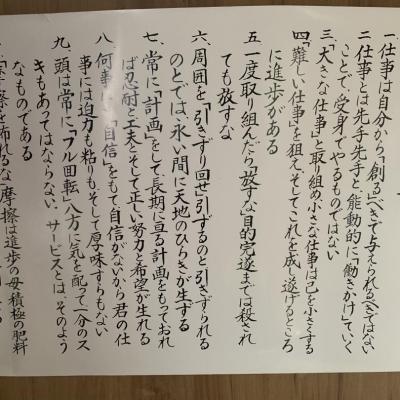 一、仕事は自分から「創る」べきで与えられるべきではない
二、仕事とは先手先手と、能動的に「働きかけ」ていく
ことで、受身でやるものではない
三、「大きな仕事」と取り組め、小さな仕事は己を小さくする
四、「難しい仕事」を狙え、そしてこれを成し遂げるところ
に進歩がある
五、一度取り組んだら「放すな」目的完遂までは殺され
ても放すな
六、周囲を「引きずり回せ」引きずるのと引きずられる
のとでは、永い間に天地のひらきが生ずる
七、常に「計画」をもて長期に亘る計画をもっておれ
ば忍耐と工夫とそして正しい努力と希望が生れる
八、何事に「自信」をもて、自信がないから君の仕
事には迫力も粘りも、そして厚味すらもない
九、頭は常に「フル回転」八方に気を配って一分のス
キもあってはならない、サービスとは、そのよう
なものである
摩擦を怖れるな」摩擦は進歩の母、積極の肥料